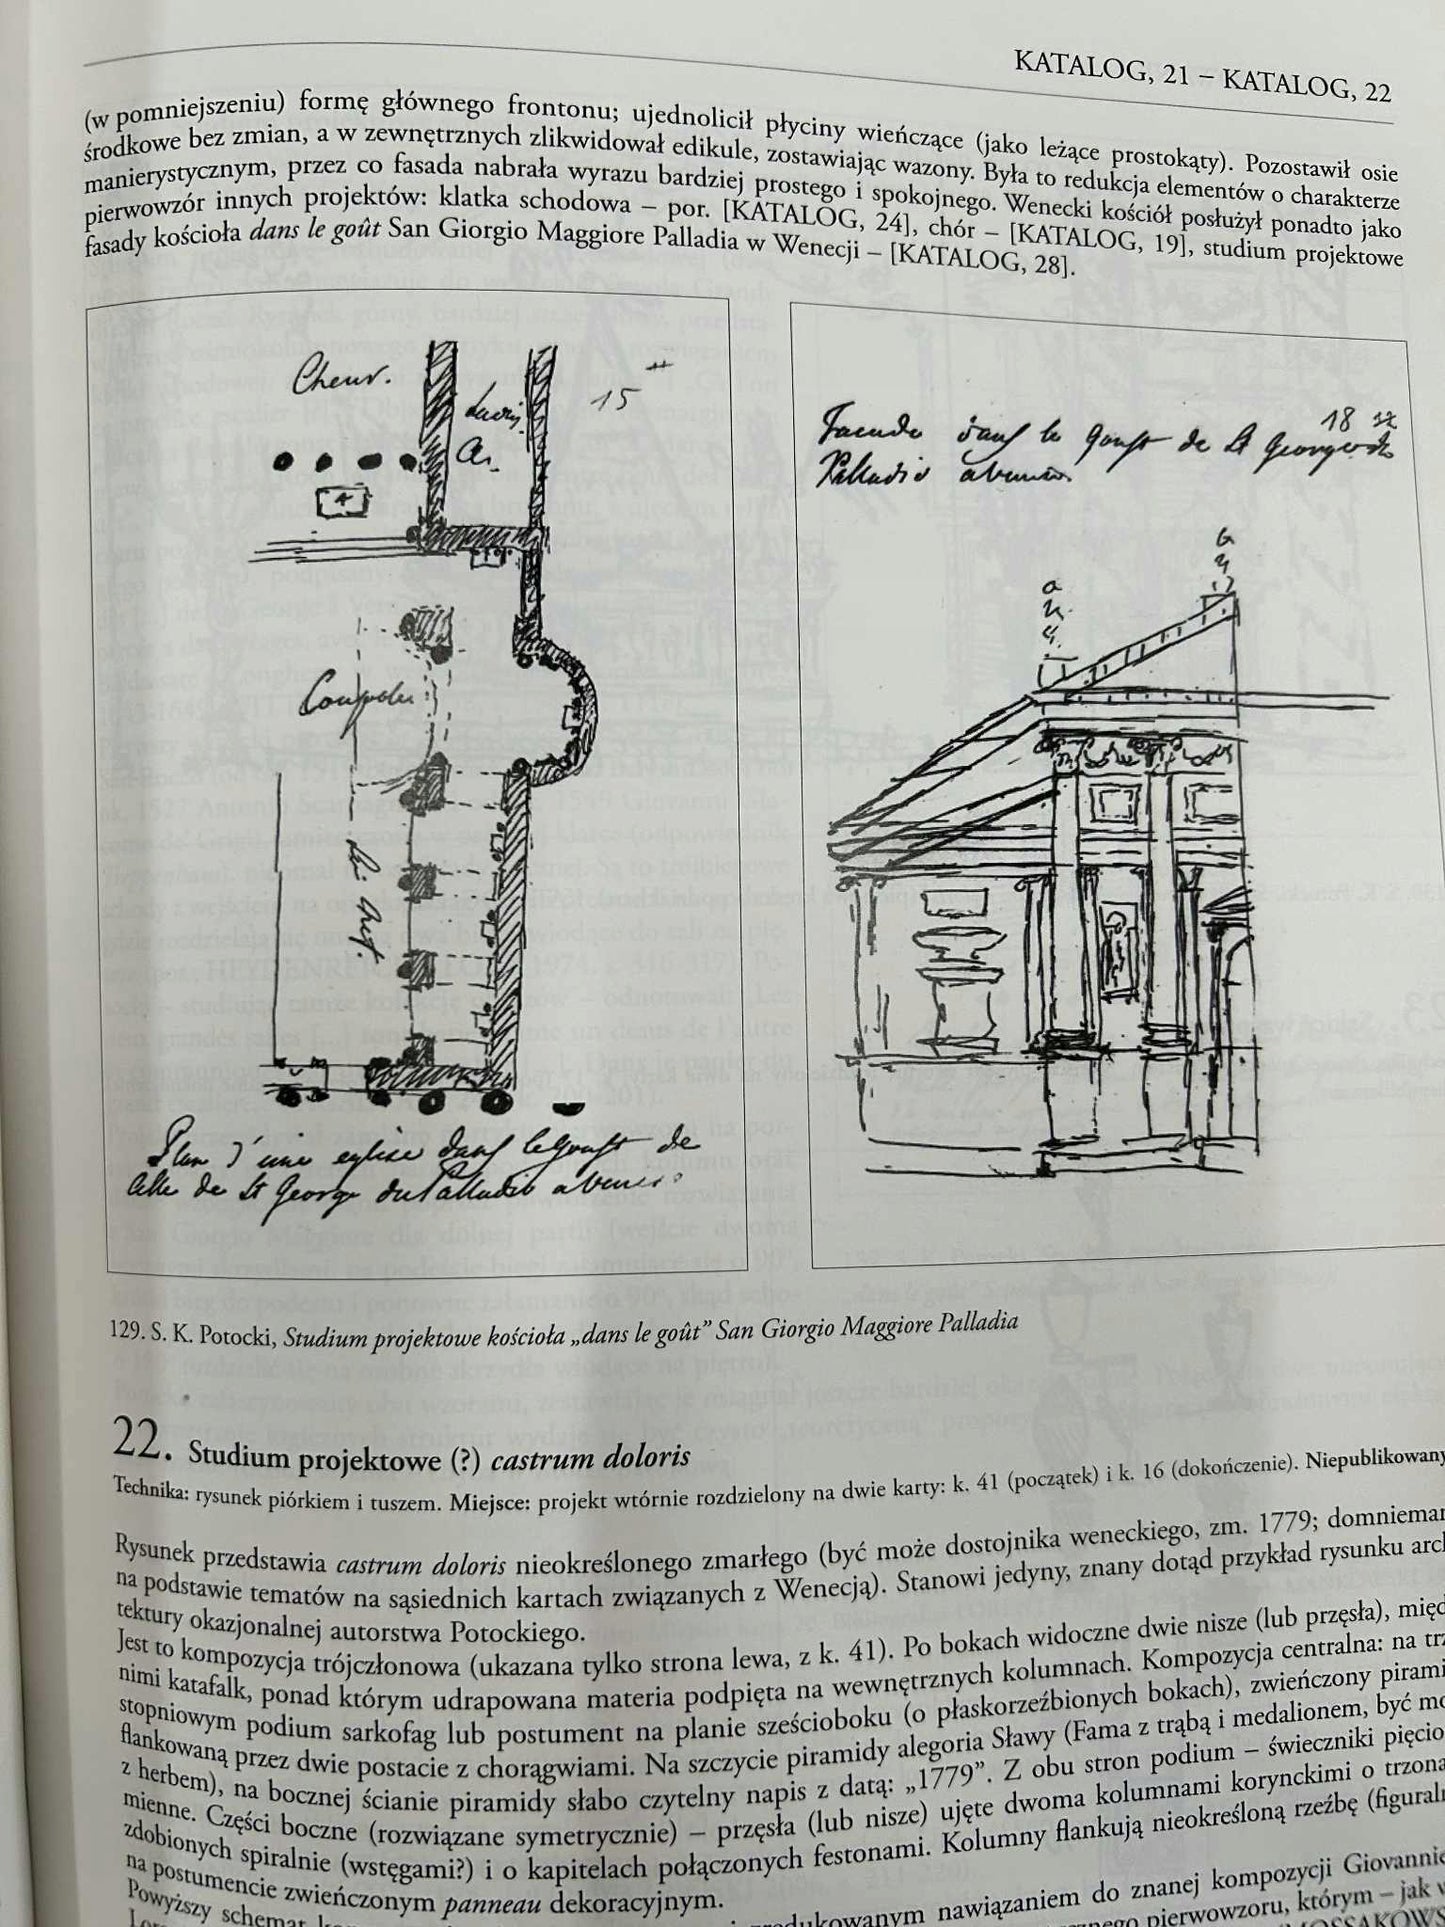 KATALOG, 21 – KATALOG, 22
(w pomniejszeniu) formę głównego frontonu; ujednolicił płyciny wieńczące (jako leżące prostokąty). Pozostawił osie
środkowe bez zmian, a w zewnętrznych zlikwidował edikule, zostawiając wazony. Była to redukcja elementów o charakterze
manierystycznym, przez co fasada nabrała wyrazu bardziej prostego i spokojnego. Wenecki kościół posłużył ponadto jako
pierwowzór innych projektów: klatka schodowa – por. [KATALOG, 24], chór – [KATALOG, 19], studium projektowe
fasady kościoła dans le goût San Giorgio Maggiore Palladia w Wenecji – [KATALOG, 28].
15
Coupole
Plan d'une eglise dans le goust de
celle de St George du Palladio a venise
18
Facade dans le goust de St George de
Palladio a venise
129. S. K. Potocki, Studium projektowe kościoła „dans le goût” San Giorgio Maggiore Palladia
22. Studium projektowe (?) castrum doloris
Technika: rysunek piórkiem i tuszem. Miejsce: projekt wtórnie rozdzielony na dwie karty: k. 41 (początek) i k. 16 (dokończenie). Niepublikowany
Rysunek przedstawia castrum doloris nieokreślonego zmarłego (być może dostojnika weneckiego, zm. 1779; domnieman
na podstawie tematów na sąsiednich kartach związanych z Wenecją). Stanowi jedyny, znany dotąd przykład rysunku arch
tektury okazjonalnej autorstwa Potockiego.
Jest to kompozycja trójczłonowa (ukazana tylko strona lewa, z k. 41). Po bokach widoczne dwie nisze (lub przęsła), międ
nimi katafalk, ponad którym udrapowana materia podpięta na wewnętrznych kolumnach. Kompozycja centralna: na trz
stopniowym podium sarkofag lub postument na planie sześcioboku (o płaskorzeźbionych bokach), zwieńczony pirami
flankowaną przez dwie postacie z chorągwiami. Na szczycie piramidy alegoria Sławy (Fama z trąbą i medalionem, być mo
z herbem), na bocznej ścianie piramidy słabo czytelny napis z datą: „1779”. Z obu stron podium – świeczniki pięcio
mienne. Części boczne (rozwiązane symetrycznie) – przęsła (lub nisze) ujęte dwoma kolumnami korynckimi o trzona
zdobionych spiralnie (wstęgami?) i o kapitelach połączonych festonami. Kolumny flankują nieokreśloną rzeźbę (figuraln
na postumencie zwieńczonym panneau dekoracyjnym.
Powyższy nawiązaniem do znanej kompozycji Giovannie
pierwowzoru, którym – jak w